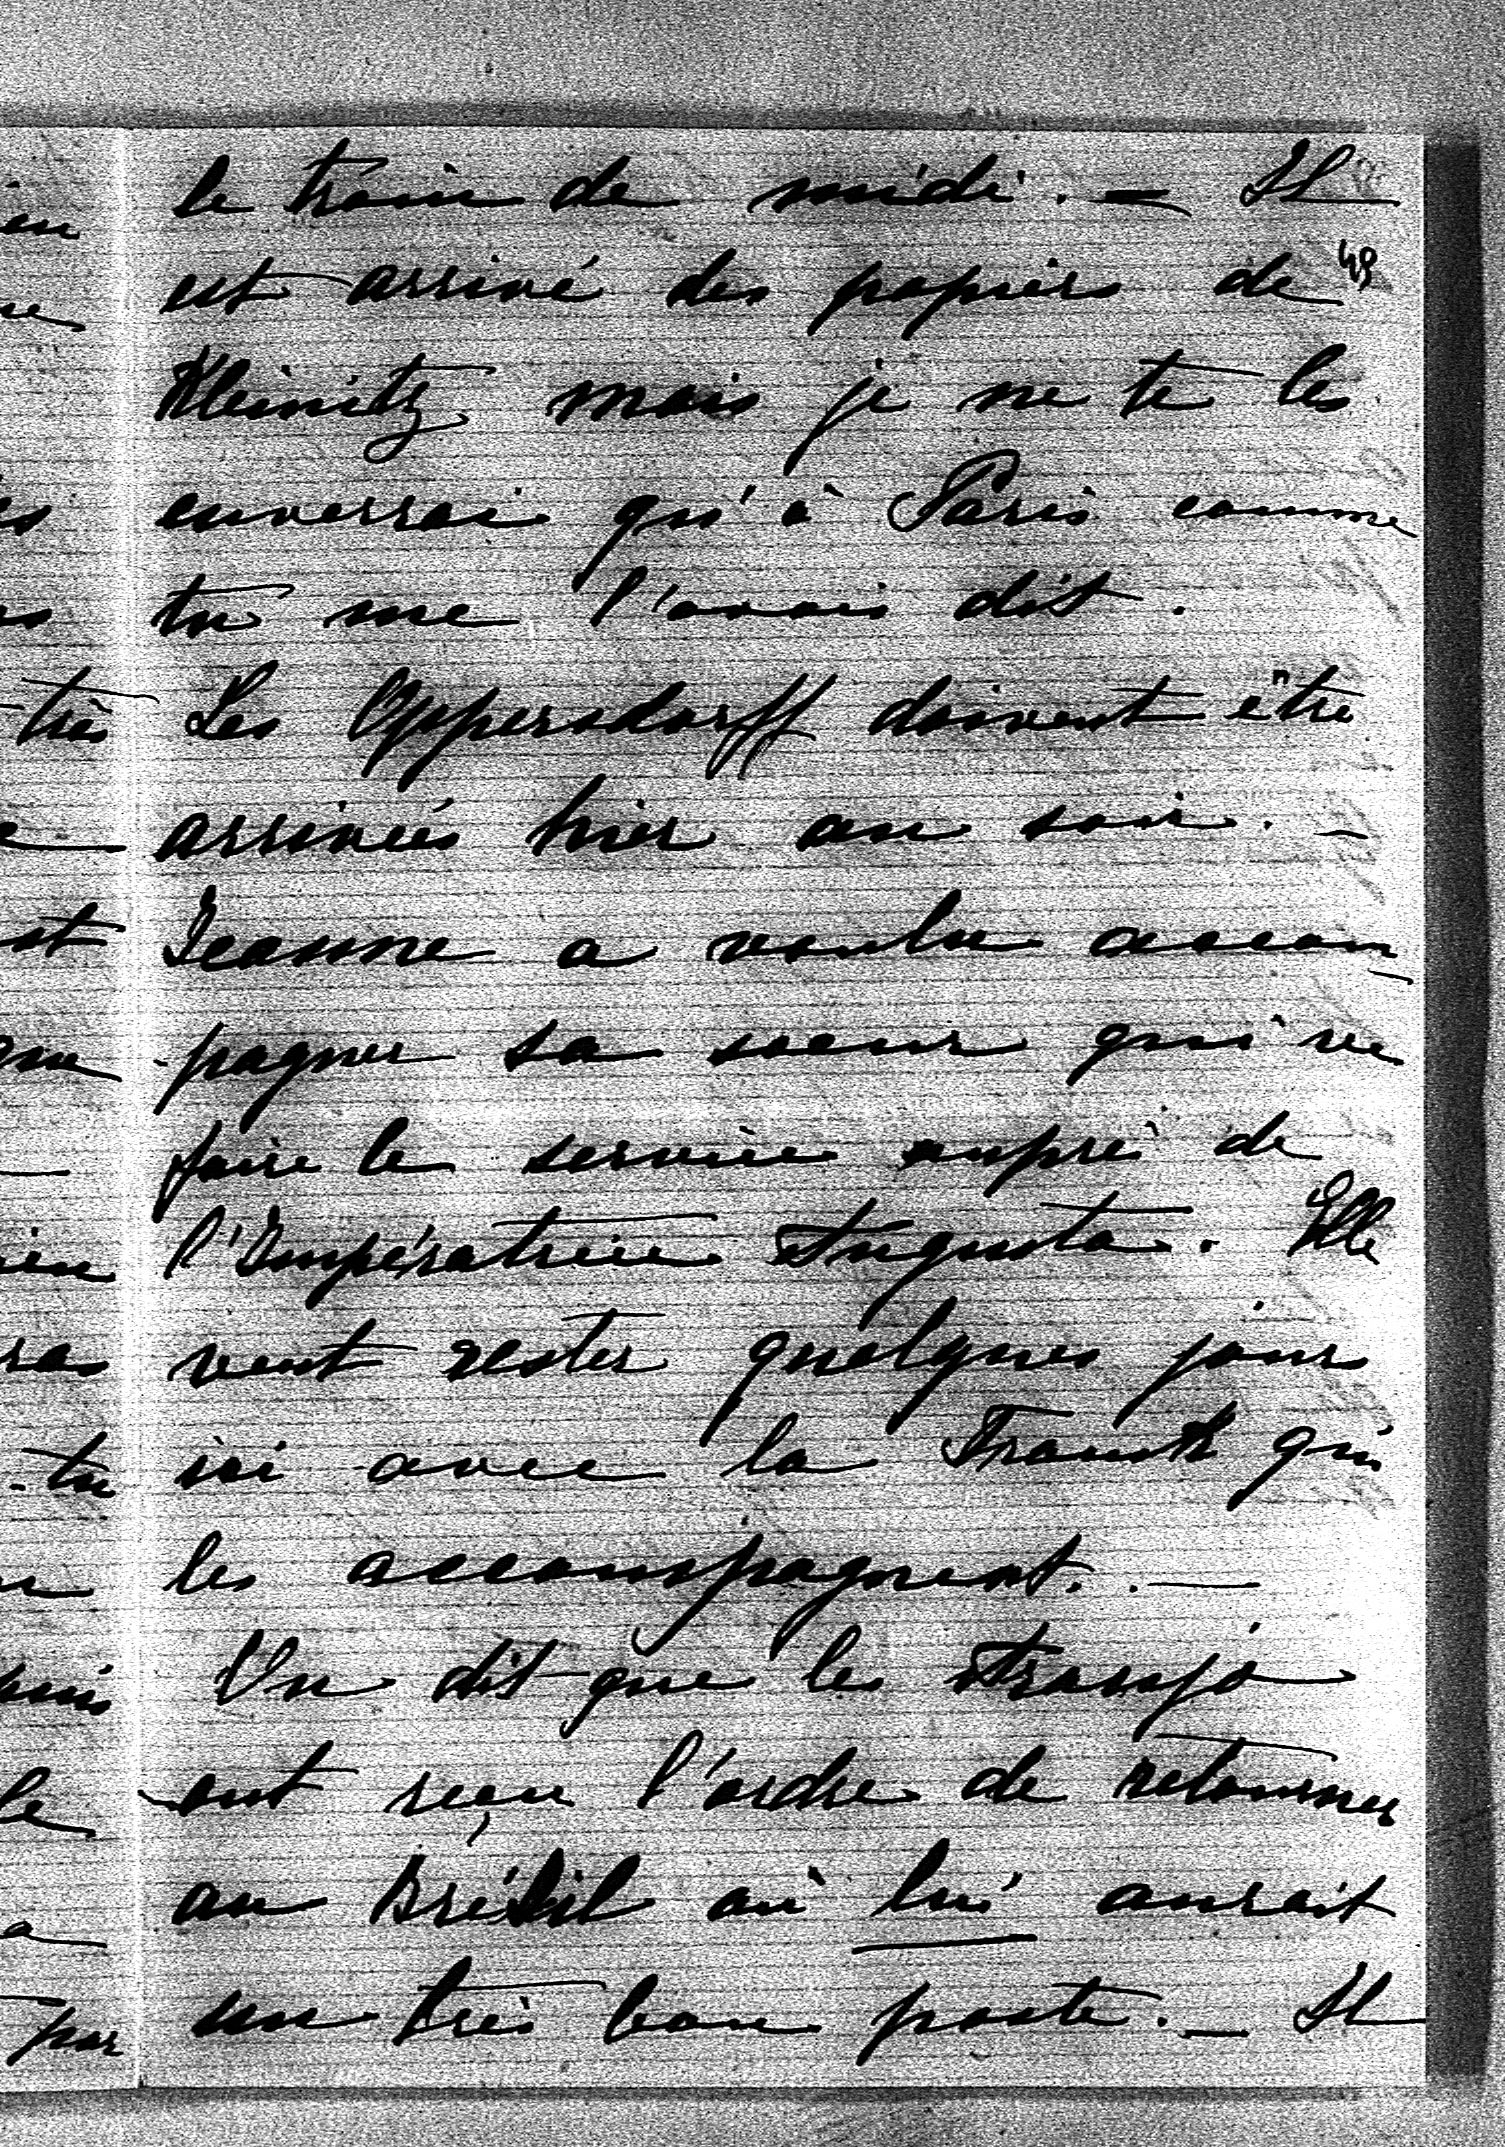 le train de midi. — Il
49
est arrivé des papiers de
Kleinitz mais je ne te les
enverrai qu'à Paris comme
tu me l'avais dit.
Les Oppersdorff doivent être
arrivées hier au soir. —
Jeanne a voulu accom
-pagner sa soeur qui va
faire le service auprè de
l'Impératrice Augusta. Elle
veut rester quelques jours
ici avec la qui
les accompagnent. —
On dit que les
ont reçu l'ordre de retourner
au Brésil où lui aurait
un très bon poste. — Il